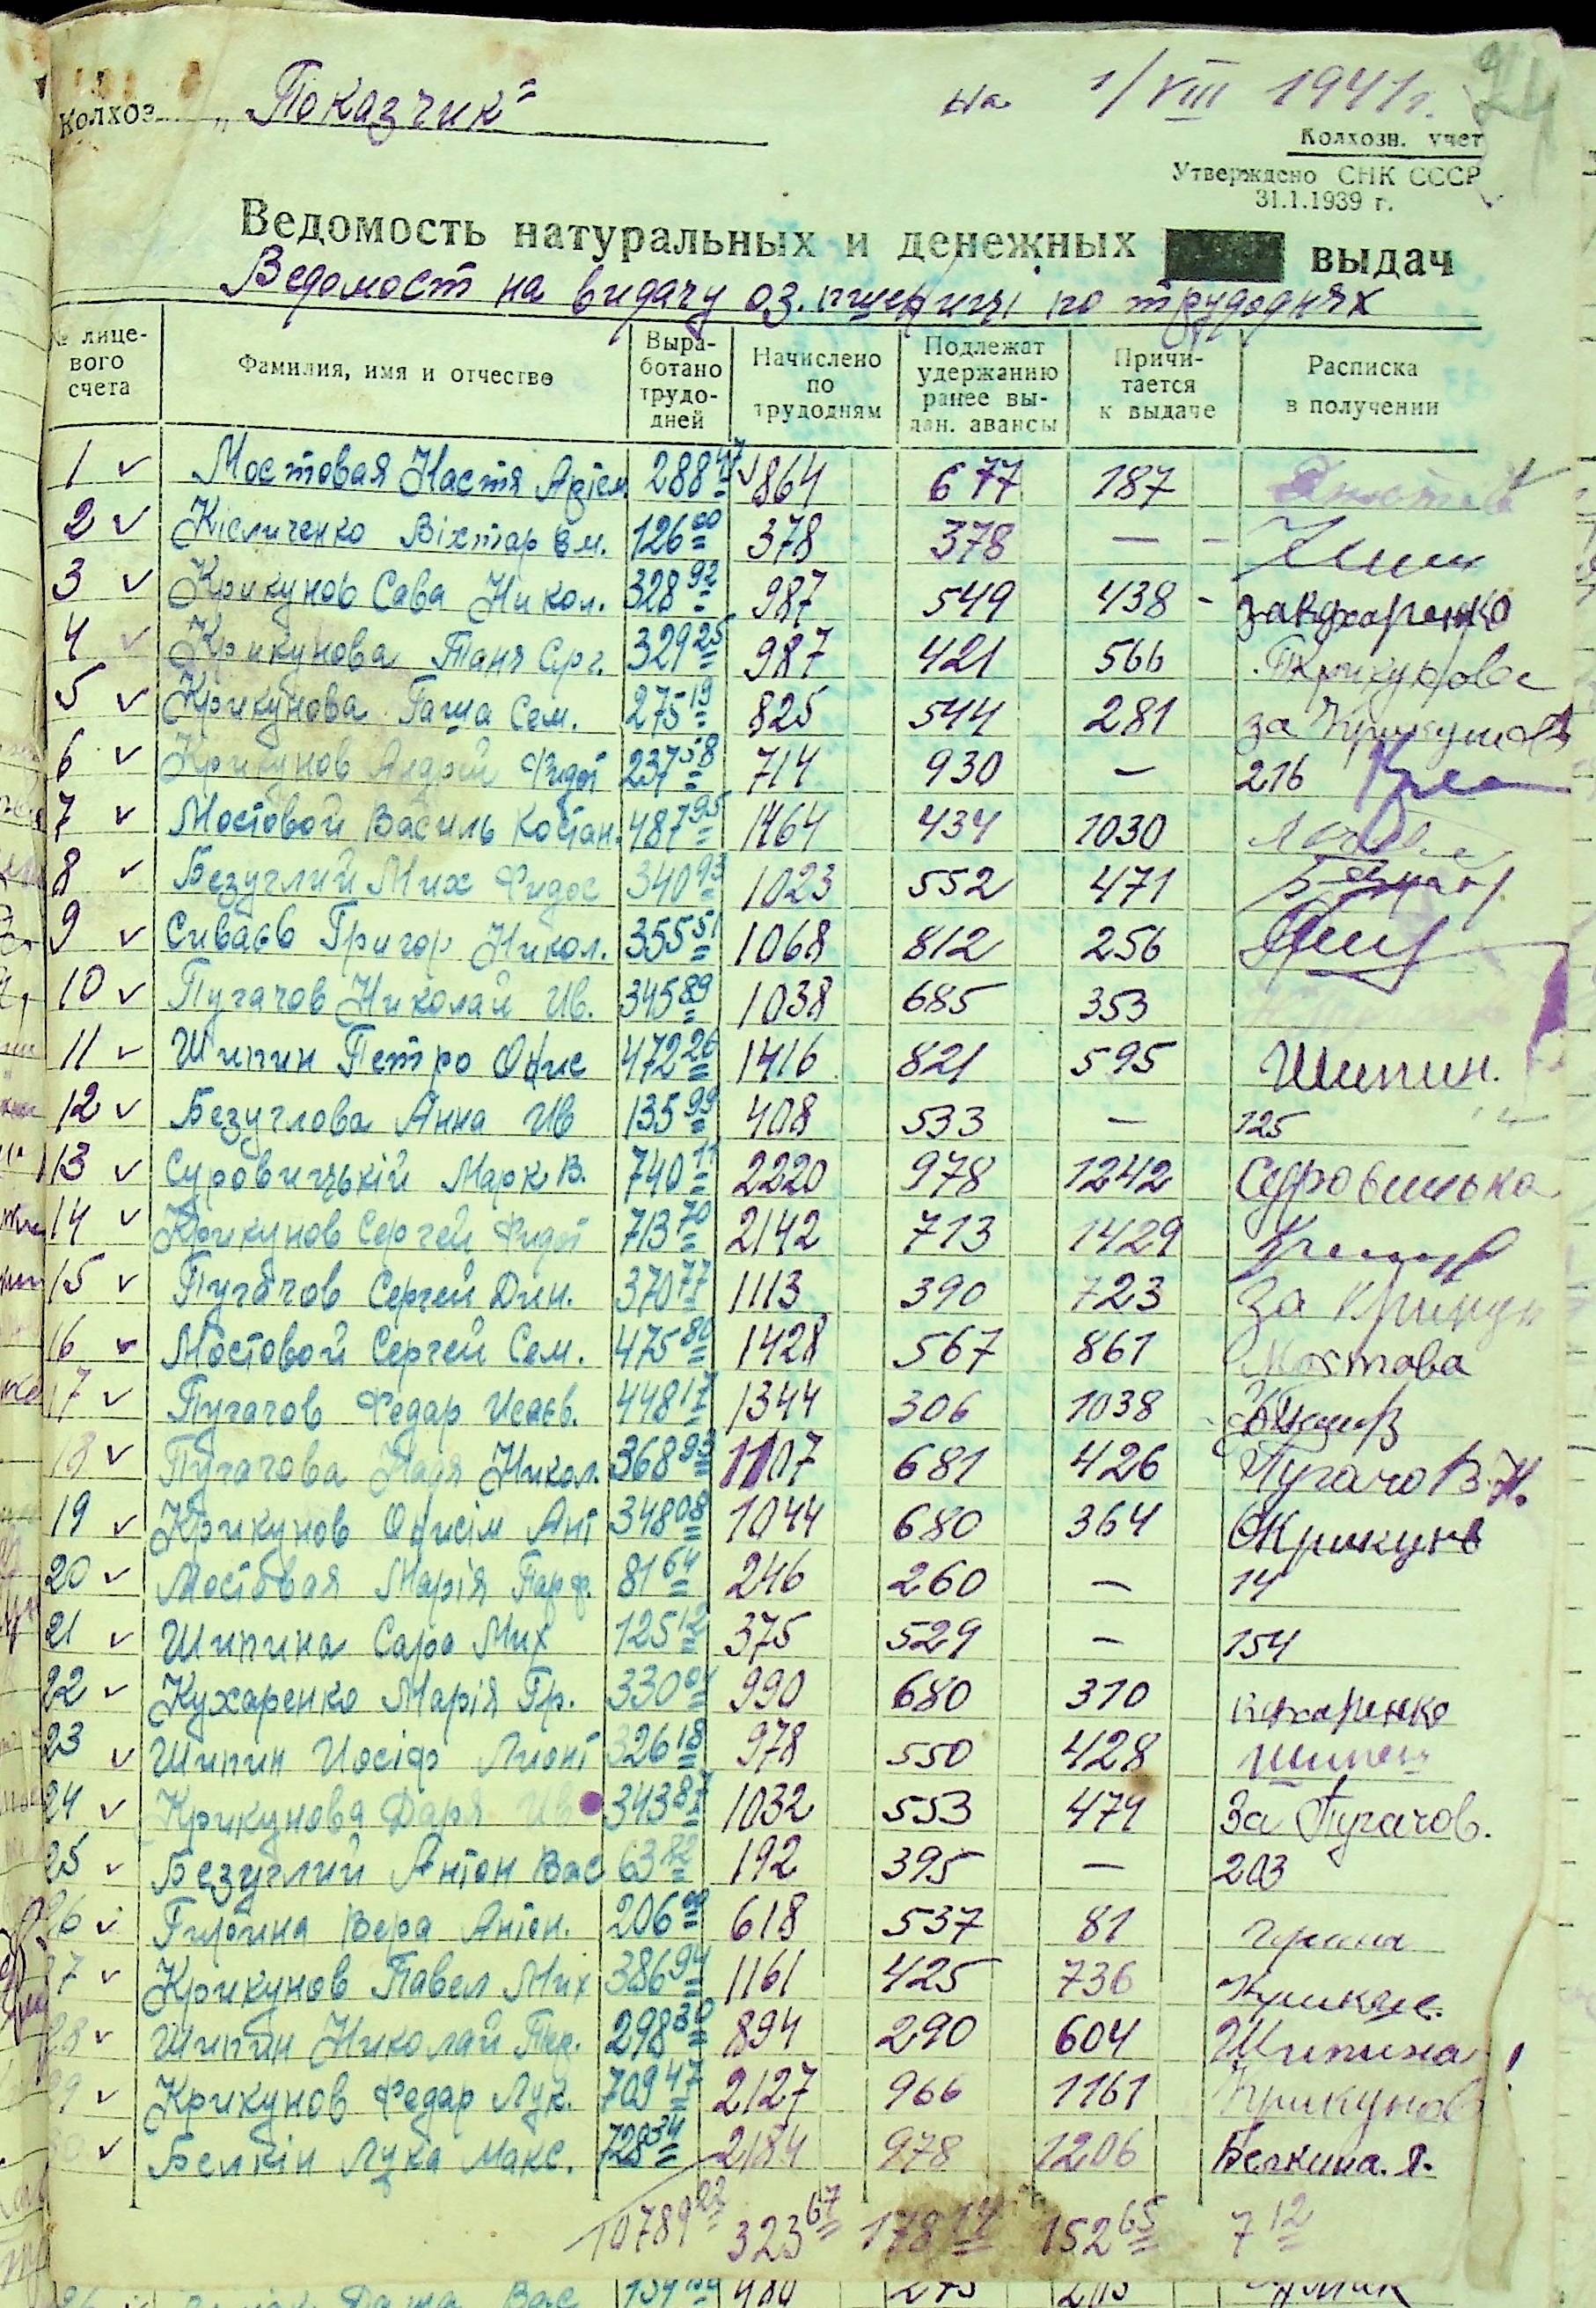 Колхоз „Показчик“ на 1/VIII 1941 г. 24
Колхозн. учет
Утверждено СНК СССР
31.1.1939 г.
Ведомость натуральных и денежных выдач
Ведомост на видачу оз. пшениці по трудоднях
№ лице-вого счета Фамилия, имя и отчество Выра-ботано трудо-дней Начислено по трудодням Подлежат удержанию ранее вы-дан. авансы Причи-тается к выдаче Расписка в получении
1 ✓ Мостовая Настя Артем 288 47 ✓ 864 677 187
2 ✓ Кісличенко Віхтар Ем. 126 00 378 378 — –
3 ✓ Крикунов Сава Никол. 328 92 987 549 438 –
4 ✓ Крикунова Таня Серг. 329 25 987 421 566 Крикунова
5 ✓ Крикунова Гаша Сем. 275 19 825 544 281 за Крикунов
6 ✓ Крикунов Андрей Фидот 237 58 714 930 — 216
7 ✓ Мостовой Василь Костан. 487 95 1464 434 1030
8 ✓ Безуглий Мих Фидос 340 93 1023 552 471
9 ✓ Сиваєв Григор Никол. 355 51 1068 812 256
10 ✓ Пугачов Николай Ив. 345 89 1038 685 353
11 ✓ Шипин Петро Онис 472 26 1416 821 595 Шипин.
12 ✓ Безуглова Анна Ив 135 99 408 533 — 125
13 ✓ Суровицькій Марк В. 740 11 2220 978 1242
14 ✓ Крикунов Сергей Фидот 713 70 2142 713 1429
15 ✓ Пугачов Сергей Дин. 370 77 1113 390 723 За Крикун
16 ✓ Мостовой Сергей Сем. 475 86 1428 567 861 Мостова
17 ✓ Пугачов Федар Исаєв. 448 17 1344 306 1038
18 ✓ Пугачова Надя Никол. 368 93 1107 681 426 Пугачов. Н.
19 ✓ Крикунов Онисім Ант 348 08 1044 680 364 Крикунов
20 ✓ Мостовая Марія Парф. 81 64 246 260 — 14
21 ✓ Шипина Сара Мих 125 12 375 529 — 154
22 ✓ Кухаренко Марія Гр. 330 04 990 680 310 Кухаренко
23 ✓ Шипин Иосіф Лионт 326 18 978 550 428 Шипин
24 ✓ Крикунова Даря Ив 343 87 1032 553 479 За Пугачов.
25 ✓ Безуглий Антон Вас 63 82 192 395 — 203
26 ✓ Вера Антон. 206 00 618 537 81
27 ✓ Крикунов Павел Мих 386 94 1161 425 736
28 ✓ Шипин Николай Пер. 298 30 894 290 604 Шипина
29 ✓ Крикунов Федар Лук. 709 47 2127 966 1161 Крикунов
30 ✓ Белкін Лука Макс. 728 34 2184 978 1206 Белкина. Л.
10789 22 323 67 178 14 152 65 7 12